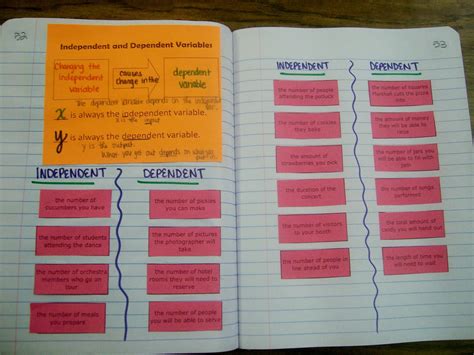 52
Independent and Dependent Variables
Changing the
independent
variable
causes
change in the
dependent
variable
The dependent variable depends on the independent
x is always the independent variable.
x is the input
y is always the dependent variable.
y is the output.
What you get out depends on
INDEPENDENT
DEPENDENT
the number of
cucumbers you have
the number of pickles
you can make
the number of students
attending the dance
the number of pictures
the photographer will
take
the number of orchestra
members who go on
tour
the number of hotel
rooms they will need to
reserve
the number of meals
you prepare
the number of people
you will be able to serve
53
INDEPENDENT
DEPENDENT
the number of people
attending the potluck
the number of squares
Marshall cuts the pizza
into
the number of cookies
they bake
the amount of money
they will be able to
raise
the amount of
strawberries you pick
the number of jars you
will be able to fill with
jam
the duration of the
concert
the number of songs
performed
the number of visitors
to your booth
the total amount of
candy you will hand out
the number of people in
line ahead of you
the length of time you
will need to wait